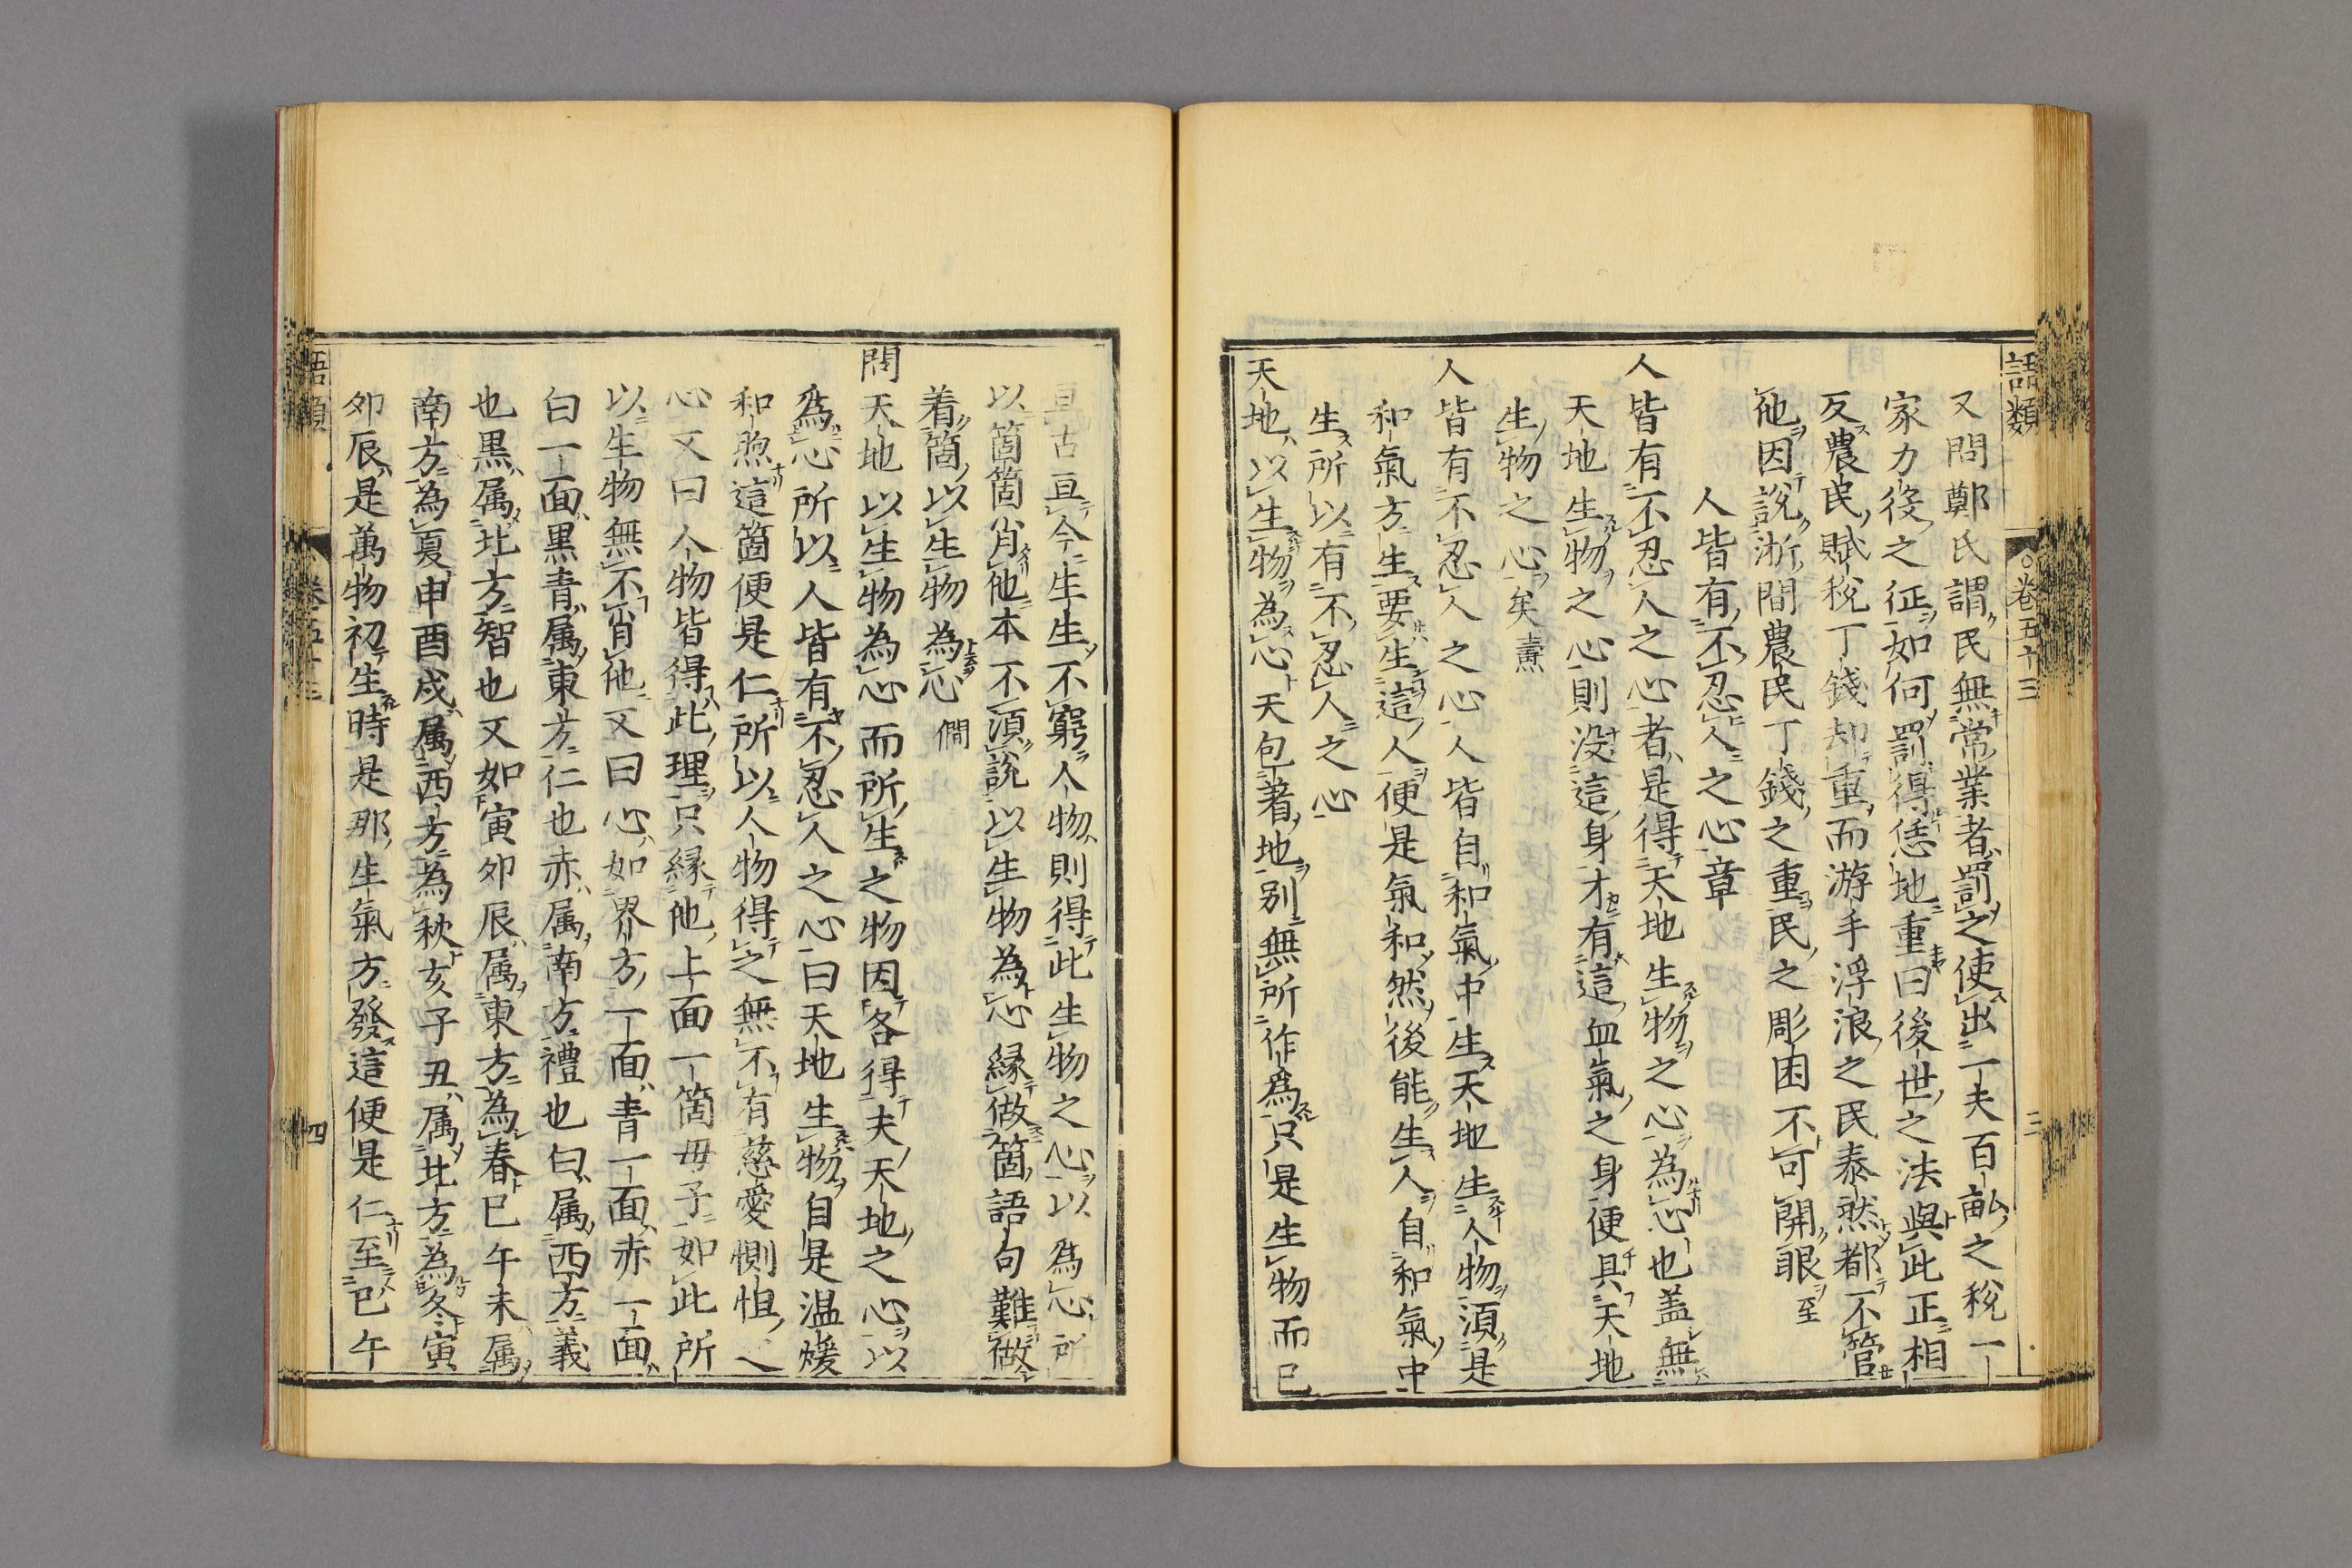 語類
○卷五十三
三
又問鄭氏謂民無常業者罰之使出一夫百畝之稅一
家力役之征如何罰得恁地重曰後世之法與此正相
反農民賦稅丁錢却重而游手浮浪之民泰然都不管
他因說浙間農民丁錢之重民之彫困不可開眼至
人皆有不忍人之心章
人皆有不忍人之心者是得天地生物之心為心也盖無
天地生物之心則没這身才有這血氣之身便具天地
生物之心矣燾
人皆有不忍人之心人皆自和氣中生天地生人物湏是
和氣方生要生這人便是氣和然後能生人自和氣中
生所以有不忍人之心
天地以生物為心天包著地别無所作爲只是生物而已
亘古亘今生生不窮人物則得此生物之心以爲心所
以箇箇肖他本不湏說以生物為心縁做箇語句難做
着箇以生物為心僩
問天地以生物為心而所生之物因各得夫天地之心以
爲心所以人皆有不忍人之心曰天地生物自是温煖
和煦這箇便是仁所以人物得之無不有慈愛惻怛之
心又曰人物皆得此理只縁他上面一箇母子如此所
以生物無不肖他又曰心如界方一面青一面赤一面
白一面黒青属東方仁也赤属南方禮也白属西方義
也黒属北方智也又如寅卯辰属東方為春巳午未属
南方為夏申酉戌属西方為秋亥子丑属北方為冬寅
卯辰是萬物初生時是那生氣方發這便是仁至巳午
語類
卷五十三
四